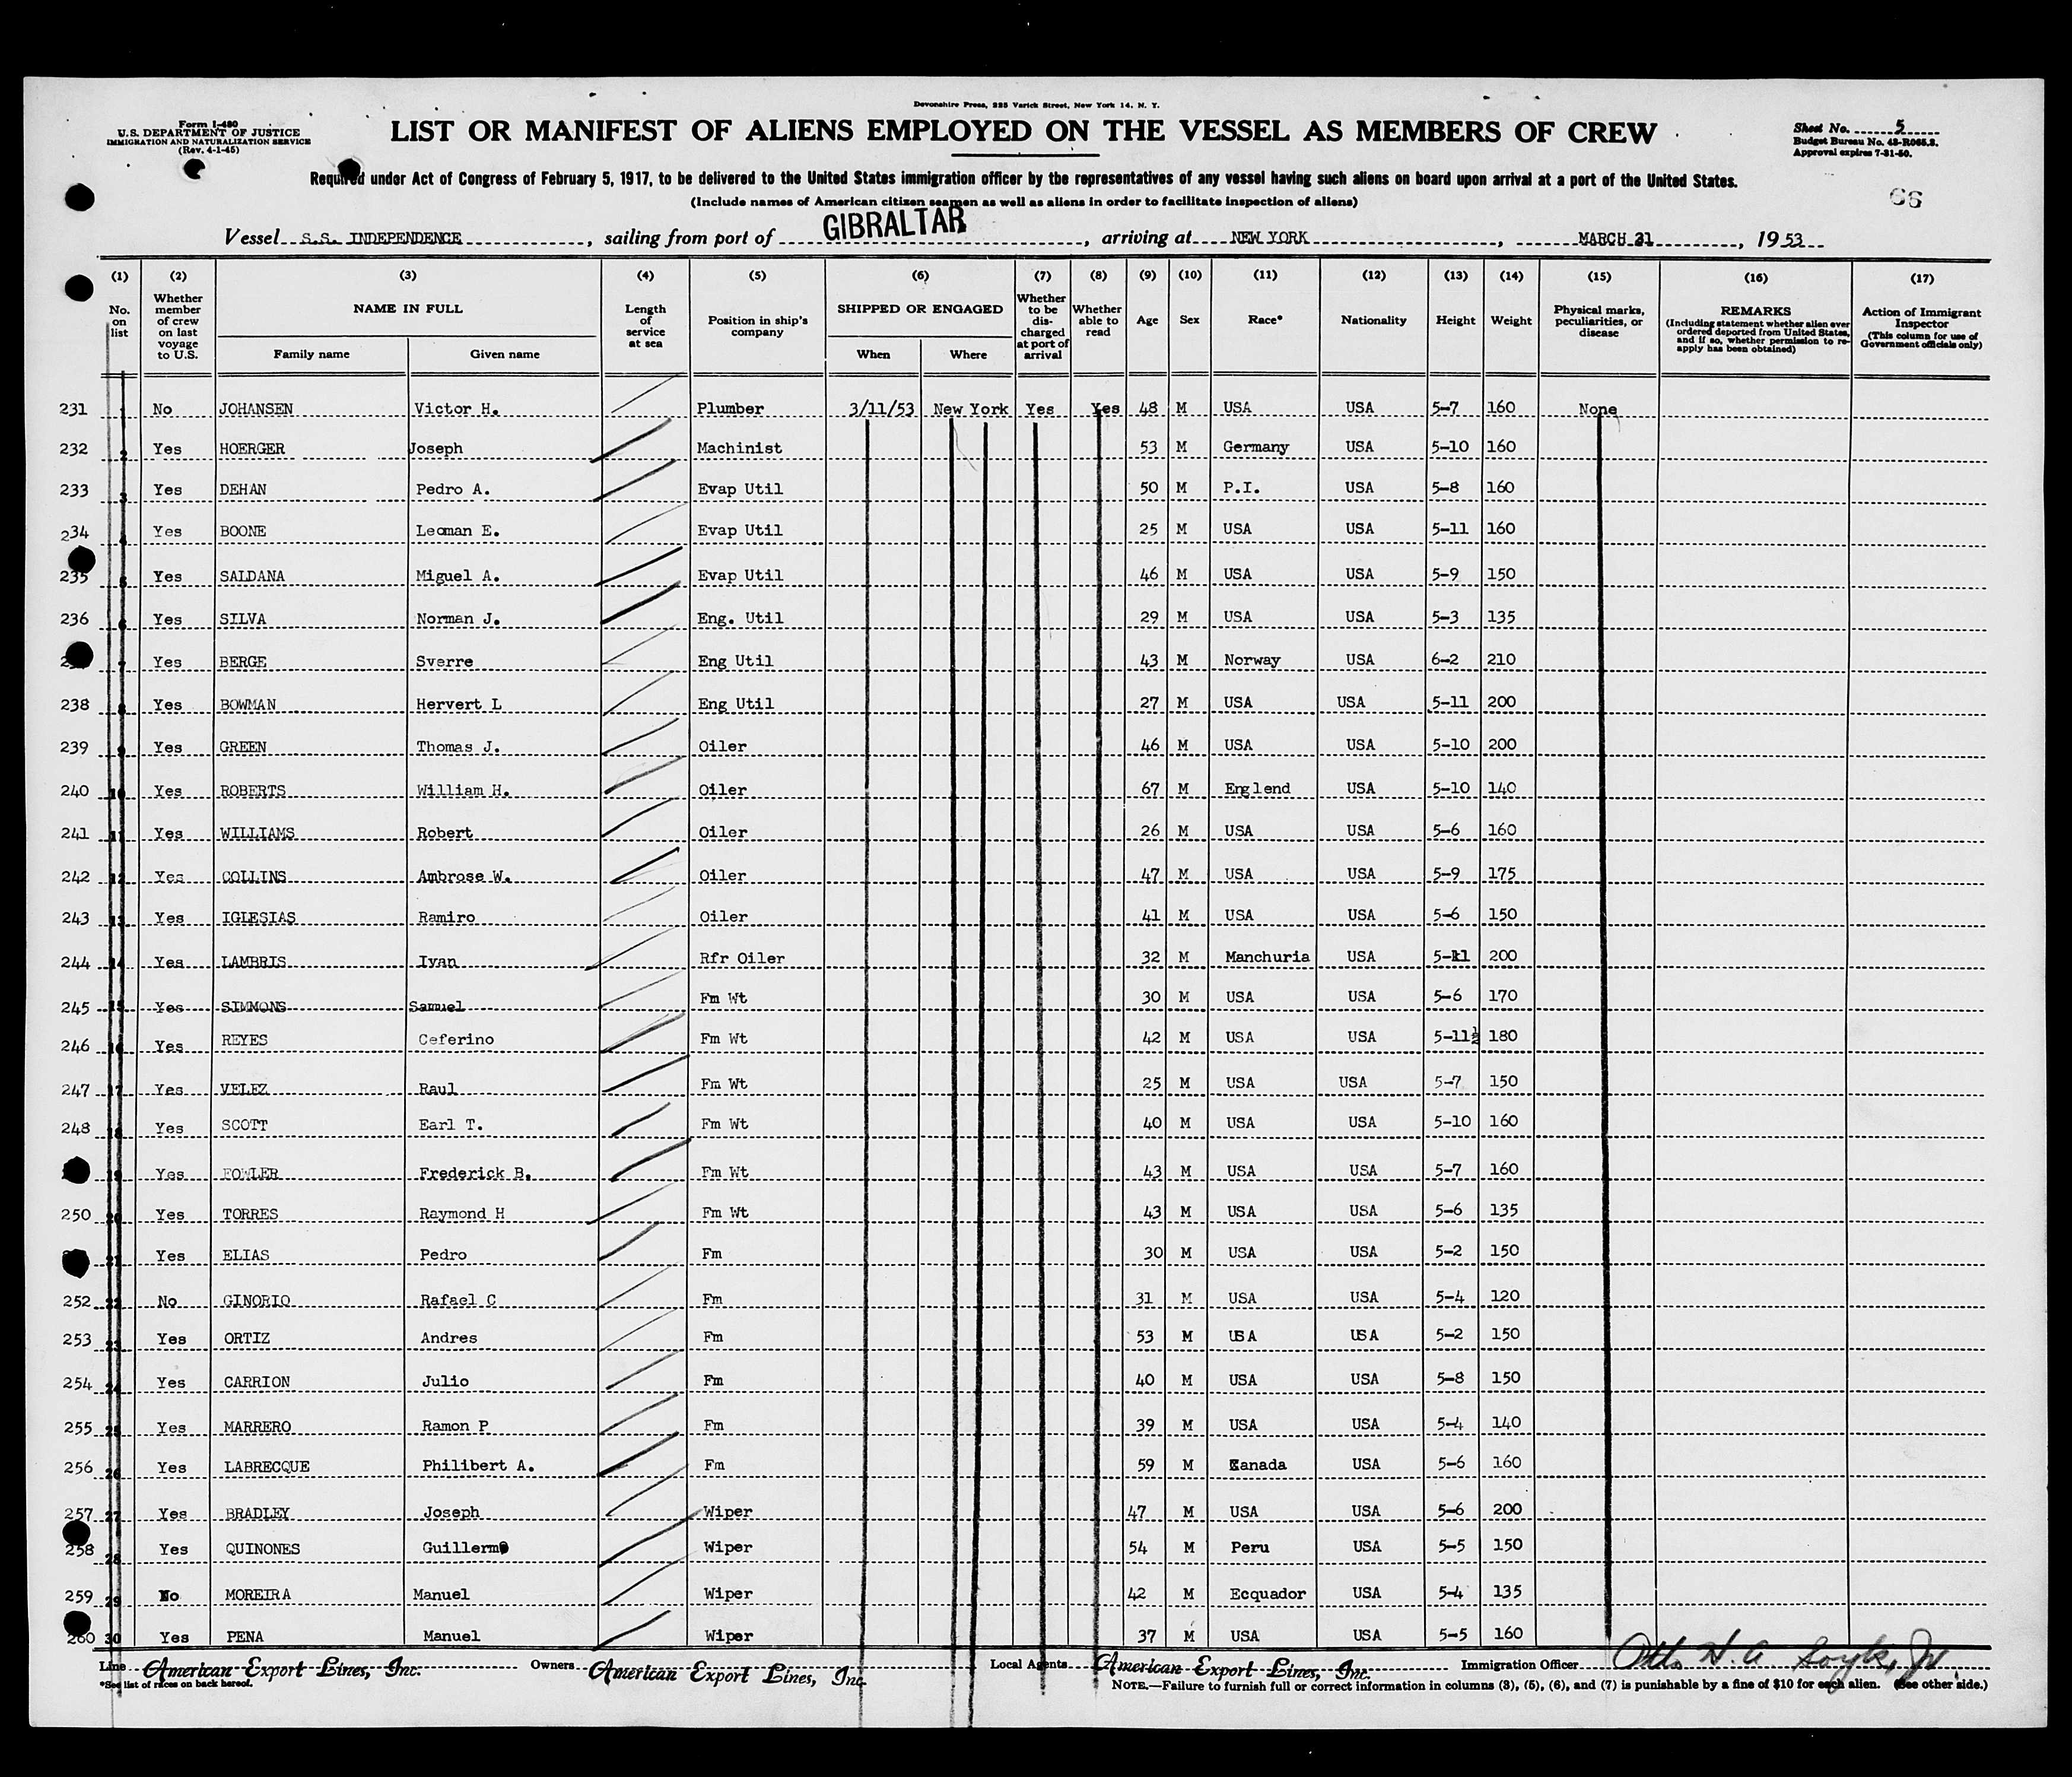 Devonshire Press, 225 Varick Street, New York 14, N. Y.
Form I-480
U.S. DEPARTMENT OF JUSTICE
IMMIGRATION AND NATURALIZATION SERVICE
(Rev. 4-1-45)
LIST OR MANIFEST OF ALIENS EMPLOYED ON THE VESSEL AS MEMBERS OF CREW
Sheet No. 5
Budget Bureau No. 43-R065.3.
Approval expires 7-31-50.
Required under Act of Congress of February 5, 1917, to be delivered to the United States immigration officer by the representatives of any vessel having such aliens on board upon arrival at a port of the United States.
(Include names of American citizen seamen as well as aliens in order to facilitate inspection of aliens)
66
Vessel S.S. INDEPENDENCE, sailing from port of GIBRALTAR, arriving at NEW YORK, MARCH 31, 1953
(1) (2) (3) (4) (5) (6) (7) (8) (9) (10) (11) (12) (13) (14) (15) (16) (17)
No. on list
Whether member of crew on last voyage to U.S.
NAME IN FULL
Family name
Given name
Length of service at sea
Position in ship's company
SHIPPED OR ENGAGED
When
Where
Whether to be discharged at port of arrival
Whether able to read
Age
Sex
Race*
Nationality
Height
Weight
Physical marks, peculiarities, or disease
REMARKS
(Including statement whether alien ever ordered deported from United States, and if so, whether permission to re-apply has been obtained)
Action of Immigrant Inspector
(This column for use of Government officials only)
231 1 No JOHANSEN Victor H. Plumber 3/11/53 New York Yes Yes 48 M USA USA 5-7 160 None
232 2 Yes HOERGER Joseph Machinist 53 M Germany USA 5-10 160
233 3 Yes DEHAN Pedro A. Evap Util 50 M P.I. USA 5-8 160
234 4 Yes BOONE Leoman E. Evap Util 25 M USA USA 5-11 160
235 5 Yes SALDANA Miguel A. Evap Util 46 M USA USA 5-9 150
236 6 Yes SILVA Norman J. Eng. Util 29 M USA USA 5-3 135
7 Yes BERGE Sverre Eng Util 43 M Norway USA 6-2 210
238 8 Yes BOWMAN Hervert L Eng Util 27 M USA USA 5-11 200
239 9 Yes GREEN Thomas J. Oiler 46 M USA USA 5-10 200
240 10 Yes ROBERTS William H. Oiler 67 M Englend USA 5-10 140
241 11 Yes WILLIAMS Robert Oiler 26 M USA USA 5-6 160
242 12 Yes COLLINS Ambrose W. Oiler 47 M USA USA 5-9 175
243 13 Yes IGLESIAS Ramiro Oiler 41 M USA USA 5-6 150
244 14 Yes LAMBRIS Ivan Rfr Oiler 32 M Manchuria USA 5-11 200
245 15 Yes SIMMONS Samuel Fm Wt 30 M USA USA 5-6 170
246 16 Yes REYES Ceferino Fm Wt 42 M USA USA 5-11½ 180
247 17 Yes VELEZ Raul Fm Wt 25 M USA USA 5-7 150
248 18 Yes SCOTT Earl T. Fm Wt 40 M USA USA 5-10 160
19 Yes FOWLER Frederick B. Fm Wt 43 M USA USA 5-7 160
250 20 Yes TORRES Raymond H Fm Wt 43 M USA USA 5-6 135
21 Yes ELIAS Pedro Fm 30 M USA USA 5-2 150
252 22 No GINORIO Rafael C Fm 31 M USA USA 5-4 120
253 23 Yes ORTIZ Andres Fm 53 M USA USA 5-2 150
254 24 Yes CARRION Julio Fm 40 M USA USA 5-8 150
255 25 Yes MARRERO Ramon P Fm 39 M USA USA 5-4 140
256 26 Yes LABRECQUE Philibert A. Fm 59 M Canada USA 5-6 160
257 27 Yes BRADLEY Joseph Wiper 47 M USA USA 5-6 200
258 28 Yes QUINONES Guillermo Wiper 54 M Peru USA 5-5 150
259 29 No MOREIRA Manuel Wiper 42 M Ecquador USA 5-4 135
260 30 Yes PENA Manuel Wiper 37 M USA USA 5-5 160
Line American Export Lines, Inc. Owners American Export Lines, Inc. Local Agents American Export Lines, Inc. Immigration Officer Otto H. A.
*See list of races on back hereof.
NOTE.—Failure to furnish full or correct information in columns (3), (5), (6), and (7) is punishable by a fine of $10 for each alien. (See other side.)